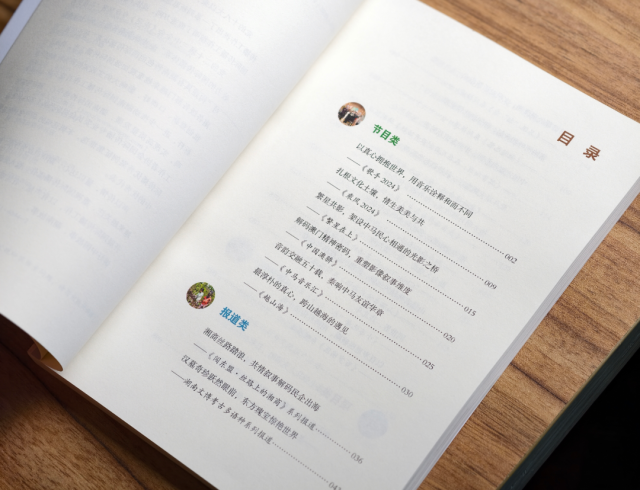 目 录
节目类
以真心拥抱世界，用音乐诠释和而不同
——《歌手2024》
002
扎根文化土壤，情生美美与共
——《乘风2024》
009
繁星共影，架设中马民心相通的光影之桥
——《繁星在上》
015
解码澳门精神密码，重塑影像叙事维度
020
音韵交融五十载，奏响中马友谊华章
——《中马音乐汇》
025
最淳朴的真心，跨山越海的遇见
——《越山海》
030
报道类
湘商丝路踏浪，共情叙事解码民企出海
——《闯东盟·丝路上的湘商》系列报道
036
汉墓奇珍跃然眼指，东方瑰宝惊艳世界
——湖南文博考古多语种系列报道